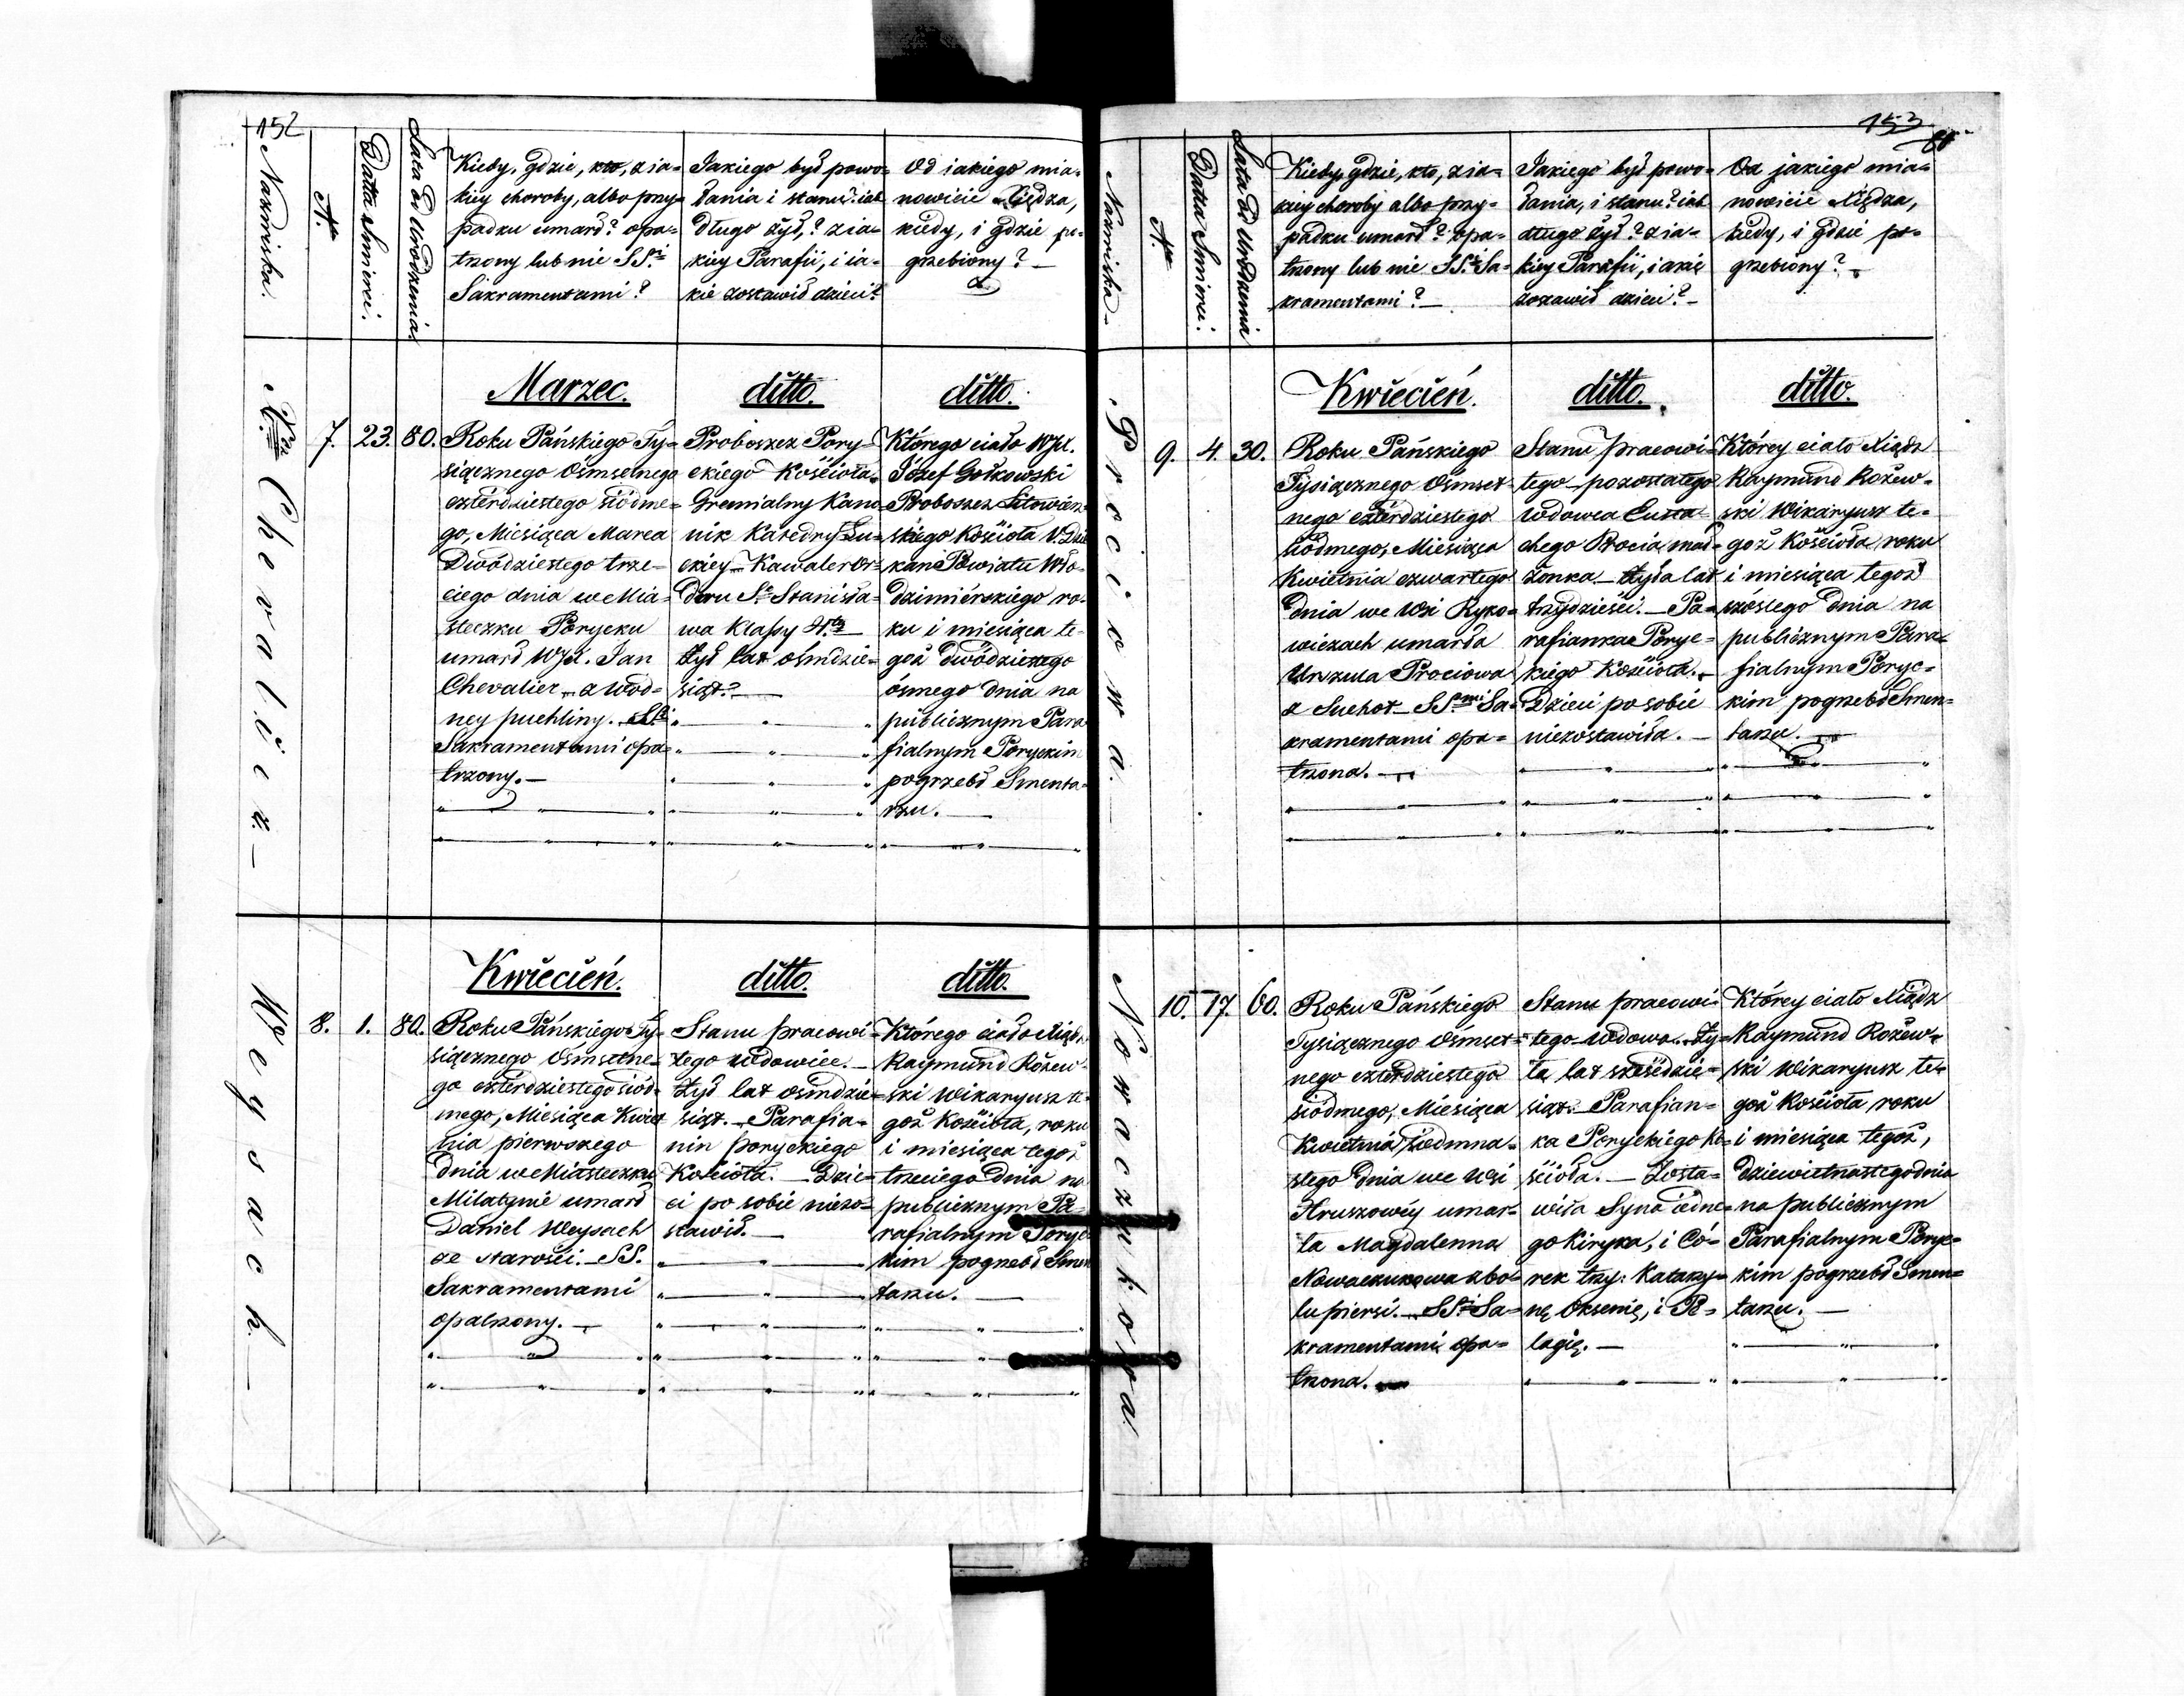 152
Nazwiska.
N.
Datta Smierci.
Lata od Urodzenia.
Kiedy, gdzie, kto, z ia=
kiey choroby, albo przy=
padku umarł? opa=
trzony lub nie SS.i
Sakramentami?
Jakiego był powo=
łania i stanu? iak
długo żył,? z ia=
kiey Parafii, i ia=
kie zostawił dzieci?
Od iakiego mia=
nowicie Xiędza,
kiedy, i gdzie po=
grzebiony? —
Chevalier. —
7.
23.
80.
Marzec.
Roku Pańskiego Ty=
siącznego Ośmsetnego
czterdziestego siódme=
go, Miesiąca Marca
Dwódziestego trze=
ciego dnia w Mia=
steczku Porycku
umarł WJX. Jan
Chevalier z wod=
ney puchliny. SS.i
Sakramentami opa=
trzony. —
ditto.
Proboszcz Pory=
ckiego Kościoła
Gremialny Kano=
nik Katedry Łu=
ckiey Kawaler Or=
deru St. Stanisła=
wa Klassy 4.ta
żył lat ośmdzie=
siąt. —
ditto.
Którego ciało WJX.
Józef Gołkowski
Proboszcz Litowiz=
skiego Kościoła V. Dzie
kan Powiatu Wło=
dzimierskiego ro=
ku i miesiąca te=
goż dwódziestego
ósmego dnia na
publicznym Para
fialnym Poryckim
pogrzebł Smenta=
rzu. —
Weysach. —
8.
1.
80.
Kwiecień.
Roku Pańskiego Ty=
siącznego Ośmsetne=
go czterdziestego siód=
mego, Miesiąca Kwiet
nia pierwszego
dnia w Miasteczku
Milatynie umarł
Daniel Weysach
ze starości. SS.
Sakramentami
opatrzony. —
ditto.
Stanu pracowi=
tego wdowiec. —
Żył lat ośmdzie=
siąt. Parafia=
nin poryckiego
Kościoła. — Dzie=
ci po sobie niezo=
stawił. —
ditto.
Którego ciało Xiądz
Raymund Rożew=
ski Wikaryusz te=
goż Kościoła, roku
i miesiąca tegoż
trzeciego dnia na
publicznym Pa=
rafialnym Poryc
kim pogrzebł Smen
tarzu. —
153
80
Nazwiska.
N.
Datta Smierci.
Lata od Urodzenia
Kiedy, gdzie, kto, z ia=
kiey choroby albo przy=
padku umarł? opa=
trzony lub nie SS.i Sa=
kramentami? —
Jakiego był powo=
łania, i stanu? iak
długo żył? z ia=
kiey Parafii, i akie
zostawił dzieci? —
Od jakiego mia=
nowicie Xiędza,
kiedy, i gdzie po=
grzebiony?
Prociowa.
9.
4.
30.
Kwiecień.
Roku Pańskiego
Tysiącznego Ośmset=
nego czterdziestego
siódmego, Miesiąca
Kwietnia czwartego
dnia we Wsi Ryko=
wiczach umarła
Urszula Prociowa
z Suchot SS.mi Sa=
kramentami opa=
trzona. —
ditto.
Stanu pracowi=
tego pozostałego
wdowca Eusta=
chego Procia mał=
żonka — Żyła lat
trzydzieści. — Pa=
rafianka Poryc=
kiego Kościoła.
Dzieci po sobie
niezostawiła. —
ditto.
Którey ciało Xiądz
Raymund Rożew=
ski Wikaryusz te=
goż Kościoła, roku
i miesiąca tegoż
szóstego dnia na
publicznym Para=
fialnym Poryc=
kim pogrzebł Smen=
tarzu. —
Nowaczukowa.
10.
17.
60.
Roku Pańskiego
Tysiącznego Ośmset=
nego czterdziestego
siódmego, Miesiąca
Kwietnia siedmna=
stego dnia we Wsi
Hruszowey umar=
ła Magdalenna
Nowaczukowa z bo=
lu piersi. SS.i Sa=
kramentami opa=
trzona. —
Stanu pracowi=
tego wdowa. Ży=
ła lat sześdzie=
siąt. Parafian=
ka Poryckiego Ko=
ścioła. — Zosta=
wiła Syna iedne=
go Kiryka, i Có=
rek trzy: Katarzy=
nę Oksenię, i Pe=
lagię. —
Którey ciało Xiądz
Raymund Rożew=
ski Wikaryusz te=
goż Kościoła roku
i miesiąca tegoż,
dziewietnastego dnia
na publicznym
Parafialnym Poryc=
kim pogrzebł Smen=
tarzu. —